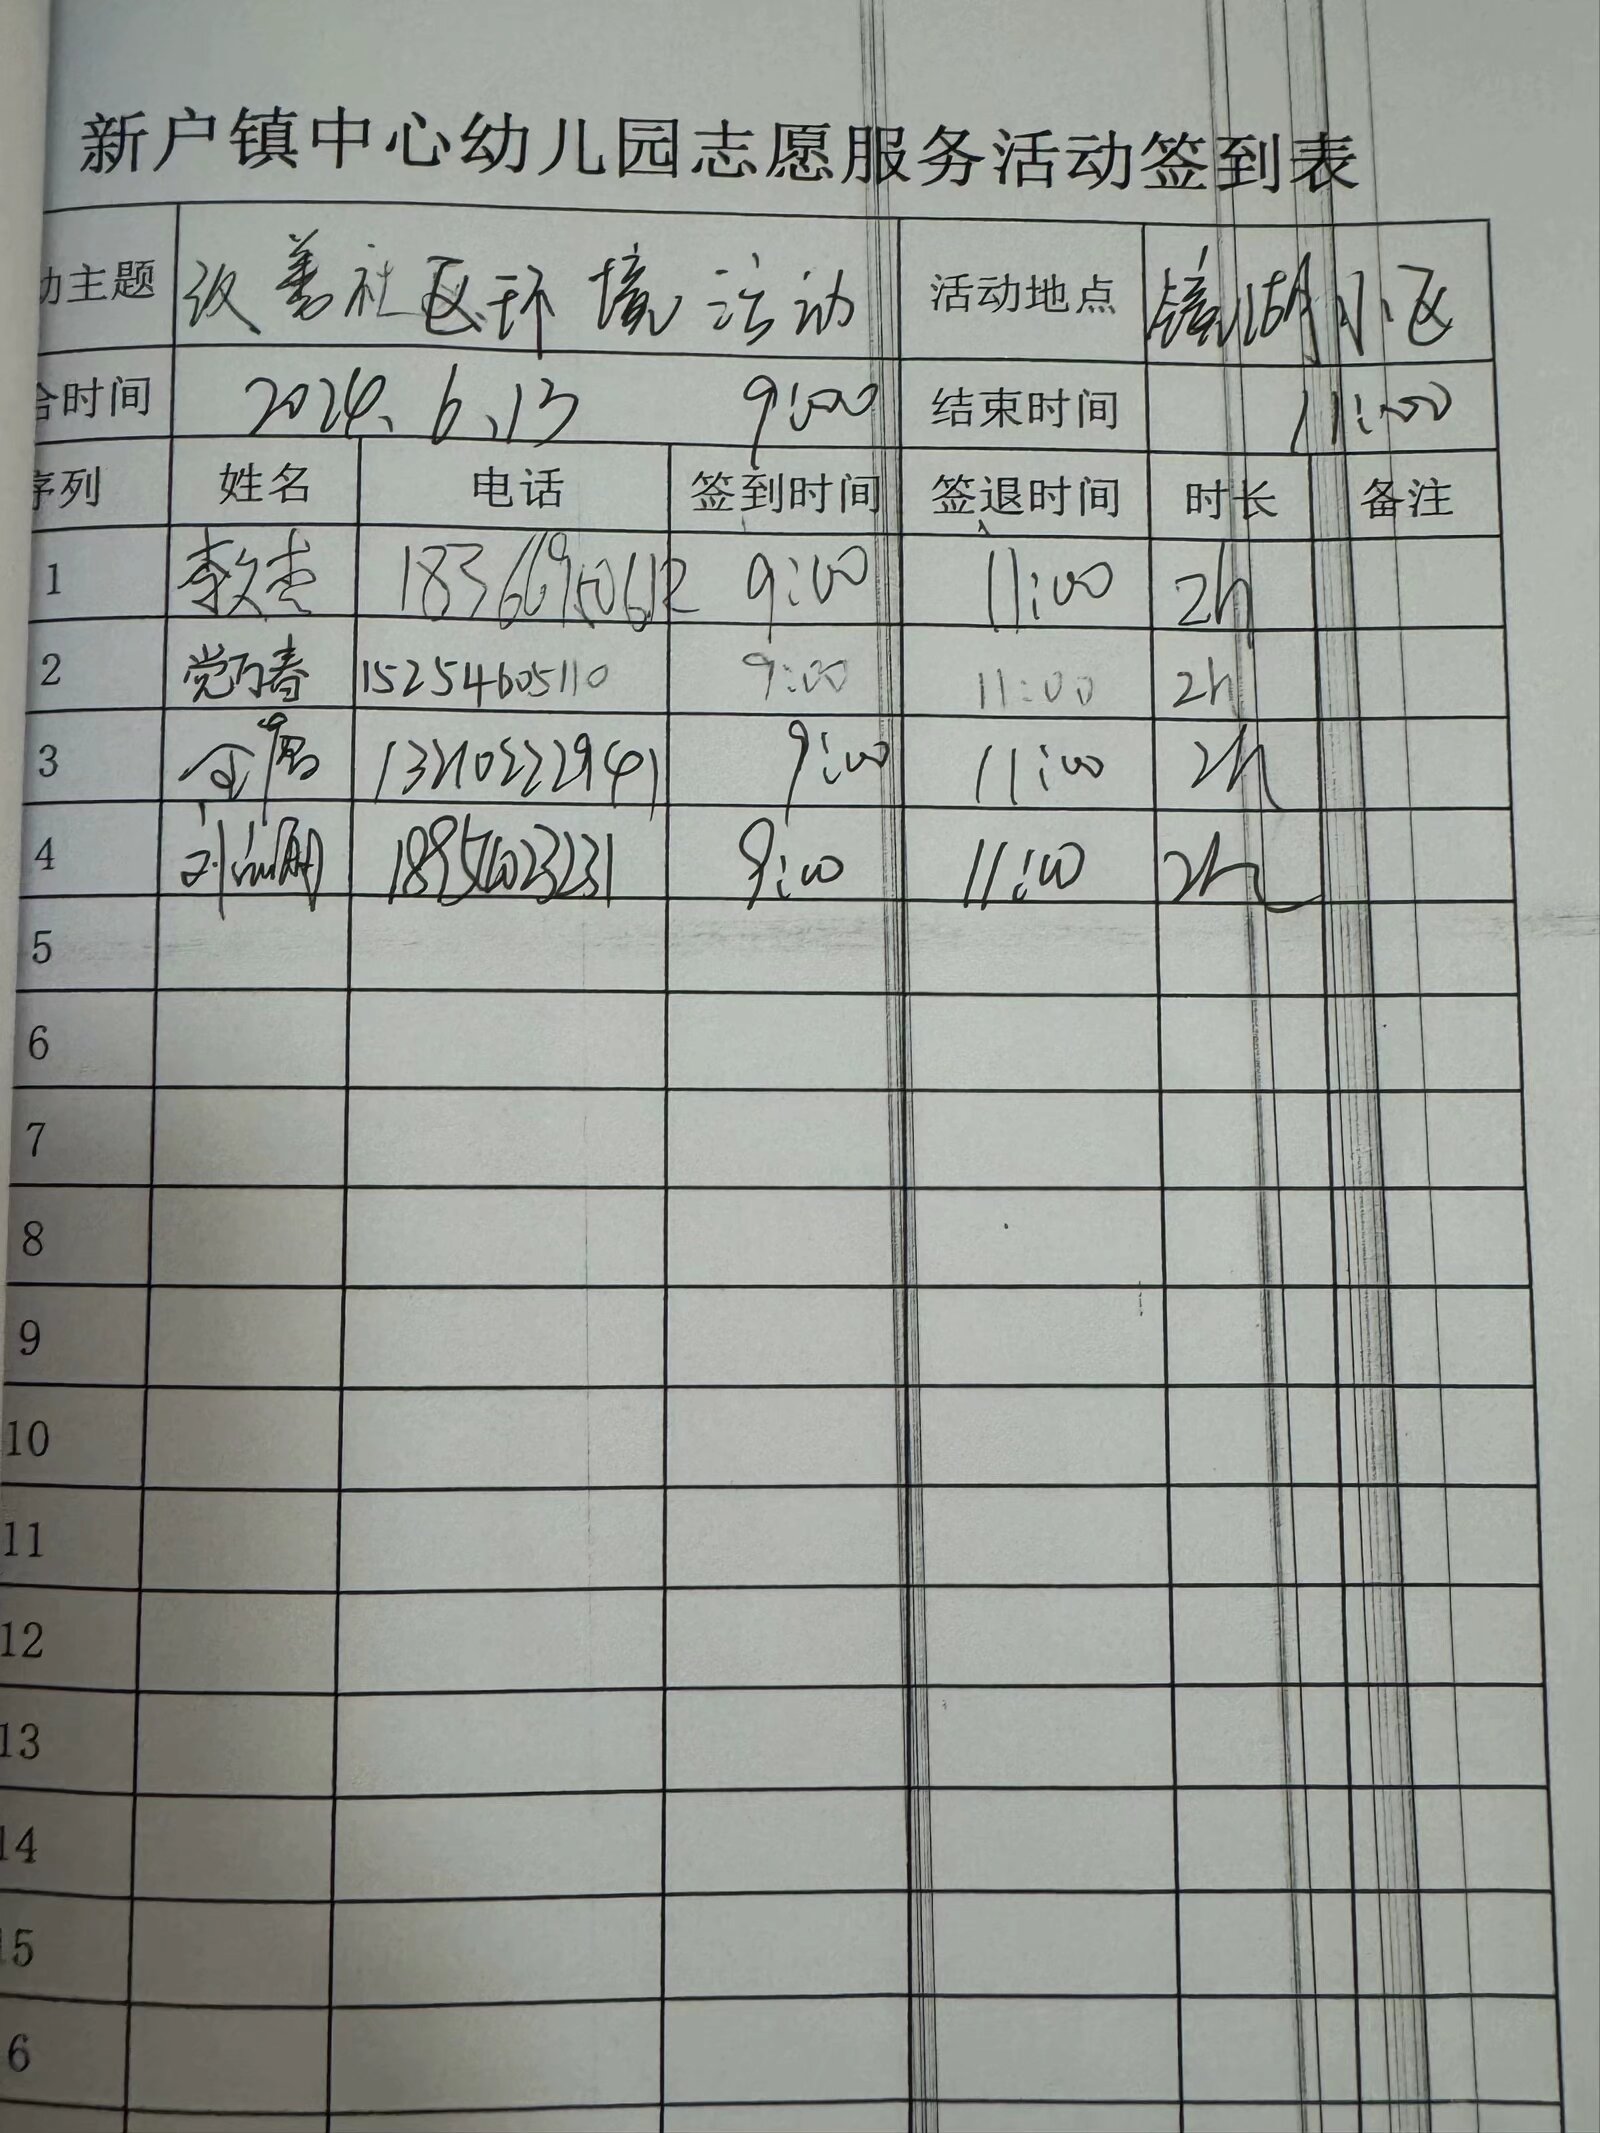 新户镇中心幼儿园志愿服务活动签到表
动主题 改善社区环境活动 活动地点 镜湖小区
合时间 2024.6.13 9:00 结束时间 11:00
序列 姓名 电话 签到时间 签退时间 时长 备注
1 李文杰 18366950612 9:00 11:00 2h
2 党万春 15254605110 9:00 11:00 2h
3 9:00 11:00 2h
4 9:00 11:00 2h
5
6
7
8
9
10
11
12
13
14
15
6